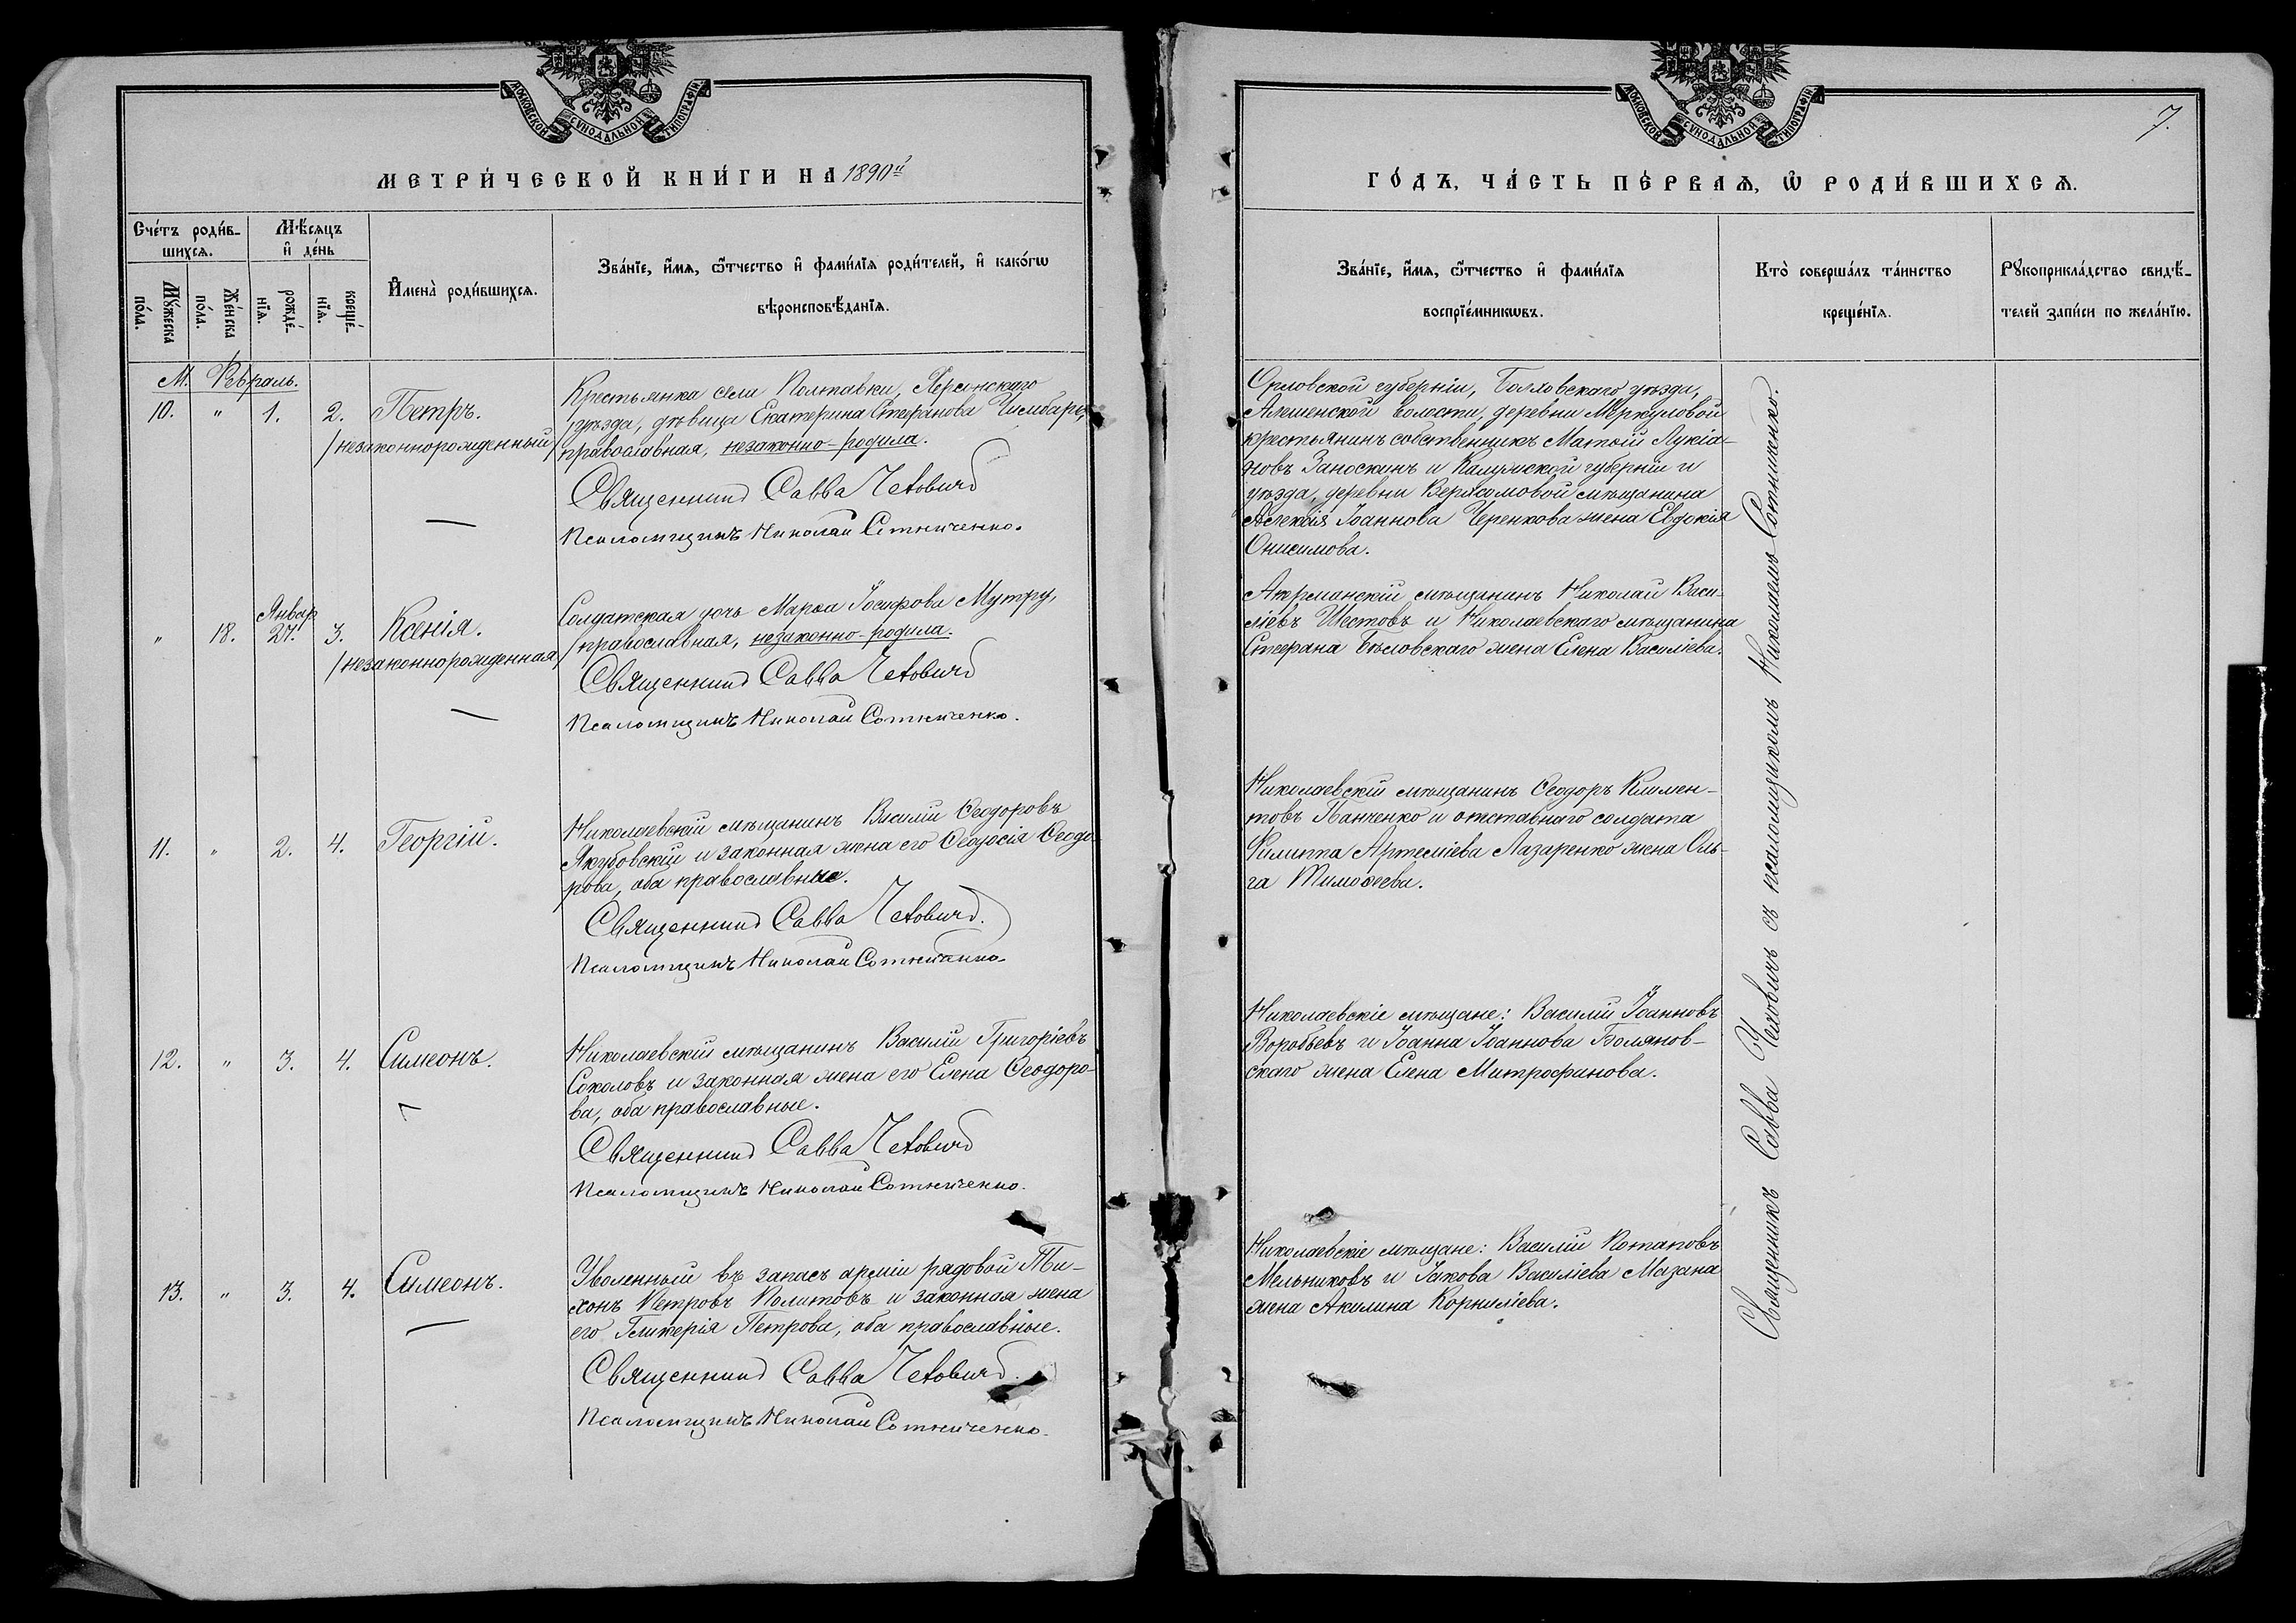 МОСКОВСКОЙ СѴНОДАЛЬНОЙ ТИПОГРАФІИ
МЕТРИ́ЧЕСКОЙ КНИ́ГИ НА 1890й
Сче́тъ роди́в-
шихсѧ.
Мѣ́сѧцъ
и҆ де́нь
Мꙋ́жеска
по́ла.
Же́нска
по́ла.
рожде́-
нїѧ.
креще́-
нїѧ.
И҆мена̀ роди́вшихсѧ.
Зва́нїе, и҆́мѧ, ѻ҆́тчество и҆ фами́лїѧ роди́телей, и҆ како́гѡ
вѣроисповѣ́данїѧ.
М. Февраль.
10. " 1. 2. Петръ.
/незаконнорожденный/
Крестьянка села Полтавки, Херсонскаго
уѣзда, дѣвица Екатерина Стефанова Чимбаръ,
православная, незаконно-родила.
Священникъ Савва Чеховичъ
Псаломщикъ Николай Сотниченко.
Январ
" 18. 27. 3. Ксенія.
/незаконнорожденная/
Солдатская дочь Марѳа Іосифова Мутру,
православная, незаконно-родила.
Священникъ Савва Чеховичъ
Псаломщикъ Николай Сотниченко.
11. " 2. 4. Георгій.
Николаевскій мѣщанинъ Василій Ѳеодоровъ
Якубовскій и законная жена его Ѳеодосія Ѳеодо-
рова, оба православные.
Священникъ Савва Чеховичъ.
Псаломщикъ Николай Сотниченко.
12. " 3. 4. Симеонъ.
Николаевскій мѣщанинъ Василій Григоріевъ
Соколовъ и законная жена его Елена Ѳеодоро-
ва, оба православные.
Священникъ Савва Чеховичъ
Псаломщикъ Николай Сотниченко.
13. " 3. 4. Симеонъ.
Уволенный въ запасъ арміи рядовой Ти-
хонъ Петровъ Политовъ и законная жена
его Гликерія Петрова, оба православные.
Священникъ Савва Чеховичъ.
Псаломщикъ Николай Сотниченко.
МОСКОВСКОЙ СѴНОДАЛЬНОЙ ТИПОГРАФІИ
7.
ГО́ДЪ, ЧА́СТЬ ПЕ́РВАѦ, Ѡ҆ РОДИ́ВШИХСѦ.
Зва́нїе, и҆́мѧ, ѻ҆́тчество и҆ фами́лїѧ
воспрїе́мникѡвъ.
Кто̀ соверша́лъ та́инство
креще́нїѧ.
Рꙋкоприкла́дство свидѣ́-
телей за́писи по жела́нїю.
Орловской губерніи, Болховскаго уѣзда,
волости, деревни Меркуловой
крестьянинъ собственникъ Матѳій Лукіа-
новъ Заноскинъ и Калужской губерніи и
уѣзда, деревни мѣщанина
Алексія Іоаннова Черенкова жена Евдокія
Онисимова.
Акерманскій мѣщанинъ Николай Васи-
ліевъ Шестовъ и Николаевскаго мѣщанина
Стефана Бѣловскаго жена Елена Василіева.
Николаевскій мѣщанинъ Ѳеодоръ Климен-
товъ Панченко и отставнаго солдата
Филиппа Артеміева Лазаренко жена Оль-
га Тимоѳеева.
Николаевскіе мѣщане: Василій Іоанновъ
Воробьевъ и Іоанна Іоаннова Болянов-
скаго жена Елена Митрофанова.
Николаевскіе мѣщане: Василій Потаповъ
Мельниковъ и Іакова Василіева Мазана
жена Акилина Корниліева.
Священникъ Савва Чеховичъ съ псаломщикомъ Николаемъ Сотниченко.